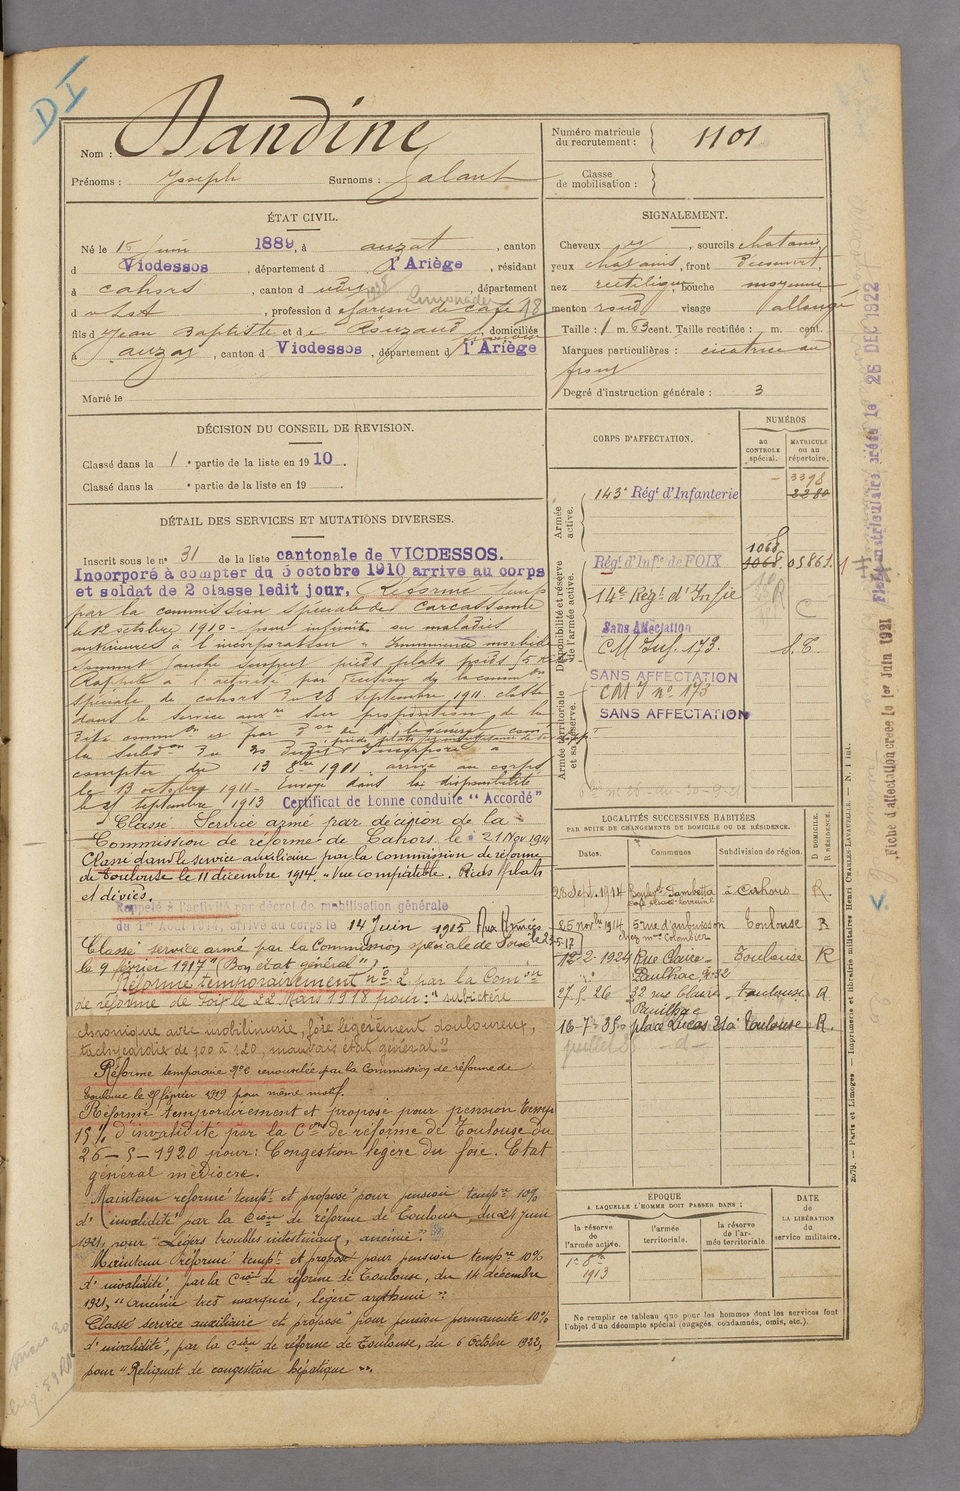 DI
Nom : Dandine
Prénoms : Joseph Surnoms : Galant
Numéro matricule du recrutement : 1101
Classe de mobilisation :
ÉTAT CIVIL.
Né le 15 juin 1889, à auzat, canton
d Vicdessos, département d l'Ariège, résidant
à Cahors, canton d , département
d Lot, profession d garçon de café 18
Limonadier
fils d Jean Baptiste et d Rouzaud, domiciliés
à auzat, canton d Vicdessos, département d l'Ariège
Marié le
SIGNALEMENT.
Cheveux , sourcils chatains
yeux chatains, front découvert,
nez rectiligne, bouche moyenne
menton rond visage allongé
Taille : 1 m. 63 cent. Taille rectifiée : m. cent.
Marques particulières : cicatrice au
front
Degré d'instruction générale : 3
DÉCISION DU CONSEIL DE REVISION.
Classé dans la 1 e partie de la liste en 1910.
Classé dans la e partie de la liste en 19 .
DÉTAIL DES SERVICES ET MUTATIONS DIVERSES.
Inscrit sous le n° 31 de la liste cantonale de VICDESSOS.
Incorporé à compter du 5 octobre 1910 arrive au corps
et soldat de 2 classe ledit jour. Réformé temp
par la commission spéciale de Carcassonne
le 12 octobre 1910 - pour infirmités ou maladies
antérieures à l'incorporation - Imminence morbide
sommet gauche suspect pieds plats poids 5
Rappelé à l'activité par décision de la comm on
spéciale de Cahors du 28 septembre 1911 classé
dans le service aux re sur proposition de la
dite comm on et par d on de M. le général com
la subd on du pieds plats
Incorporé à
compter du 13 8bre 1911 arrivé au corps
le 13 octobre 1911 - Envoyé dans la disponibilité
le 25 septembre 1913 Certificat de bonne conduite "Accordé"
Classé Service armé par décision de la
Commission de réforme de Cahors le 21 Nov 1914
Classé dans le service auxiliaire par la commission de réforme
de Toulouse le 11 décembre 1914. "Vue compatible. Pieds plats
et déviés.
Rappelé à l'activité par décret de mobilisation générale
du 1er Août 1914, arrivé au corps le 14 Juin 1915 Aux Armées
le 23-5-17
Classé service armé par la Commission spéciale de Foix
le 9 février 1917 "(Bon état général")
Réformé temporairement n° 2 par la Com ion
de réforme de Foix le 22 Mars 1918 pour : "subictère
chronique avec urobilinurie, foie légèrement douloureux,
tachycardie de 100 à 120, mauvais état général"
Réforme temporaire n°2 renouvelée par la Commission de réforme de
Toulouse le 27 février 1919 pour même motif.
Réformé temporairement et proposé pour pension temp
15% d'invalidité par la C on de réforme de Toulouse du
26-5-1920 pour : Congestion légère du foie. Etat
général médiocre.
Maintenu réformé temp t et proposé pour pension temp re 10%
d'invalidité par la C ion de réforme de Toulouse du 24 juin
1921, pour "Légers troubles intestinaux, anémie"
Maintenu réformé temp t et proposé pour pension temp re 10%
d'invalidité par la C ion de réforme de Toulouse, du 14 décembre
1921, "Anémie très marquée, légère arythmie".
Classé service auxiliaire et proposé pour pension permanente 10%
d'invalidité, par la C ion de réforme de Toulouse, du 6 Octobre 1922,
pour "Reliquat de congestion hépatique".
CORPS D'AFFECTATION.
NUMÉROS
au CONTROLE spécial.
MATRICULE ou au répertoire.
Armée active.
143e Régt d'Infanterie 3398
2280
Disponibilité et réserve de l'armée active.
Régt d'Infie de FOIX 1068 05861
1068
14e Régt d'Infie R
C
Sans Affectation
CM Inf. 173. S.T.
SANS AFFECTATION
Armée territoriale et sa réserve.
CMI n° 173
SANS AFFECTATION
LOCALITÉS SUCCESSIVES HABITÉES
PAR SUITE DE CHANGEMENTS DE DOMICILE OU DE RÉSIDENCE.
Dates. Communes Subdivision de région. D DOMICILE. R RÉSIDENCE.
28 Sept. 1914 Boulevd Gambetta à Cahors R.
25 novbre 1914 5 rue d'aubuisson Toulouse R
chez mme Colombier
12-2-1924 Rue Claire Toulouse R
Paulhac, N° 32
27-5-26 32 rue Claire Toulouse R.
Paulhac
16-7-35 place Lucas 21a Toulouse R.
ÉPOQUE
À LAQUELLE L'HOMME DOIT PASSER DANS :
la réserve de l'armée active.
l'armée territoriale.
la réserve de l'armée territoriale.
DATE de LA LIBÉRATION du service militaire.
1er 8bre
1913
Ne remplir ce tableau que pour les hommes dont les services font
l'objet d'un décompte spécial (engagés, condamnés, omis, etc.).
2679. — Paris et Limoges. — Imprimerie et librairie militaires Henri CHARLES-LAVAUZELLE. — N. 1 int.
Fiche matriculaire créée le 26 DEC 1922
Fiche d'affectation créée le 1er Juin 1921